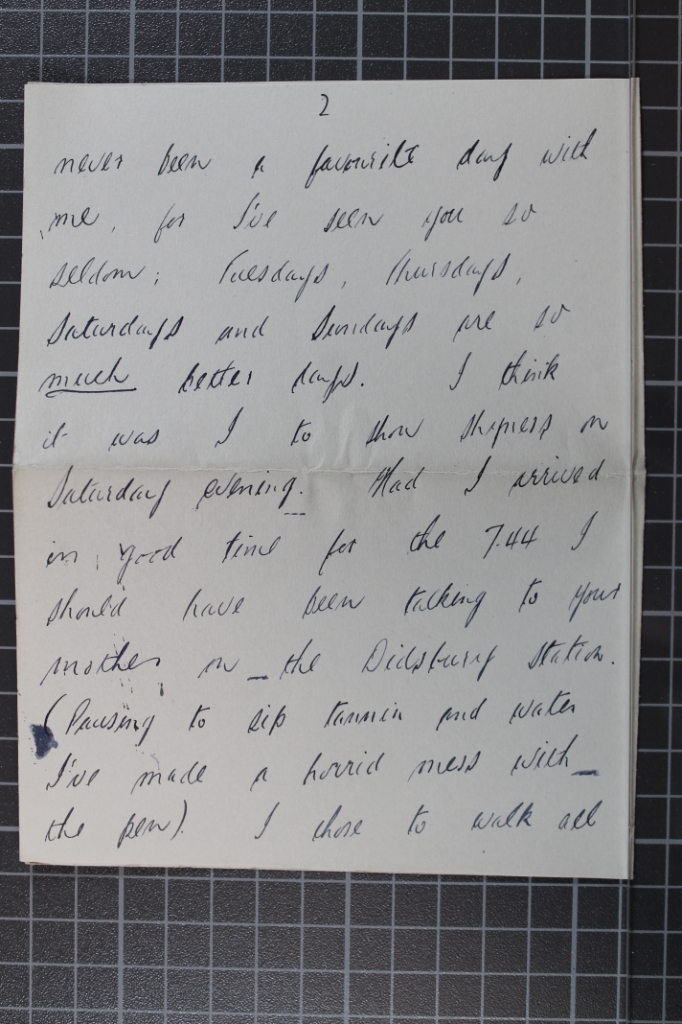 2
never been a favourite day with
me, for I've seen you so
seldom; Tuesdays, Thursdays,
Saturdays and Sundays are so
much better days. I think
it was I to show shyness on
Saturday evening. Had I arrived
in good time for the 7.44 I
should have been talking to your
mother on the Didsbury station.
(Pausing to sip tannin and water
I've made a horrid mess with
the pen). I chose to walk all